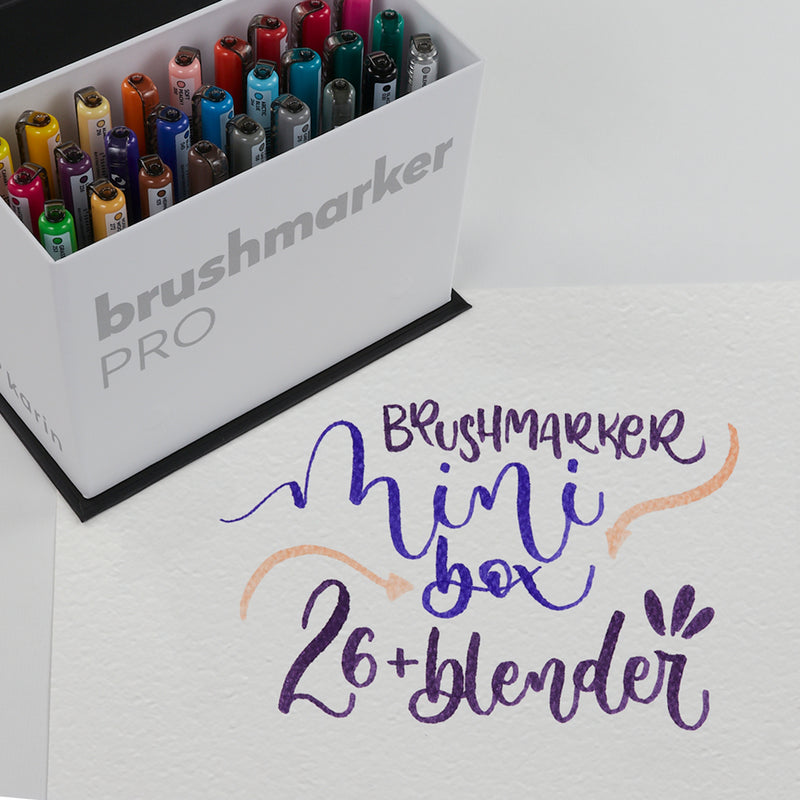 brushmarker
PRO
karin
BRUSHMARKER
mini
box
26+blender